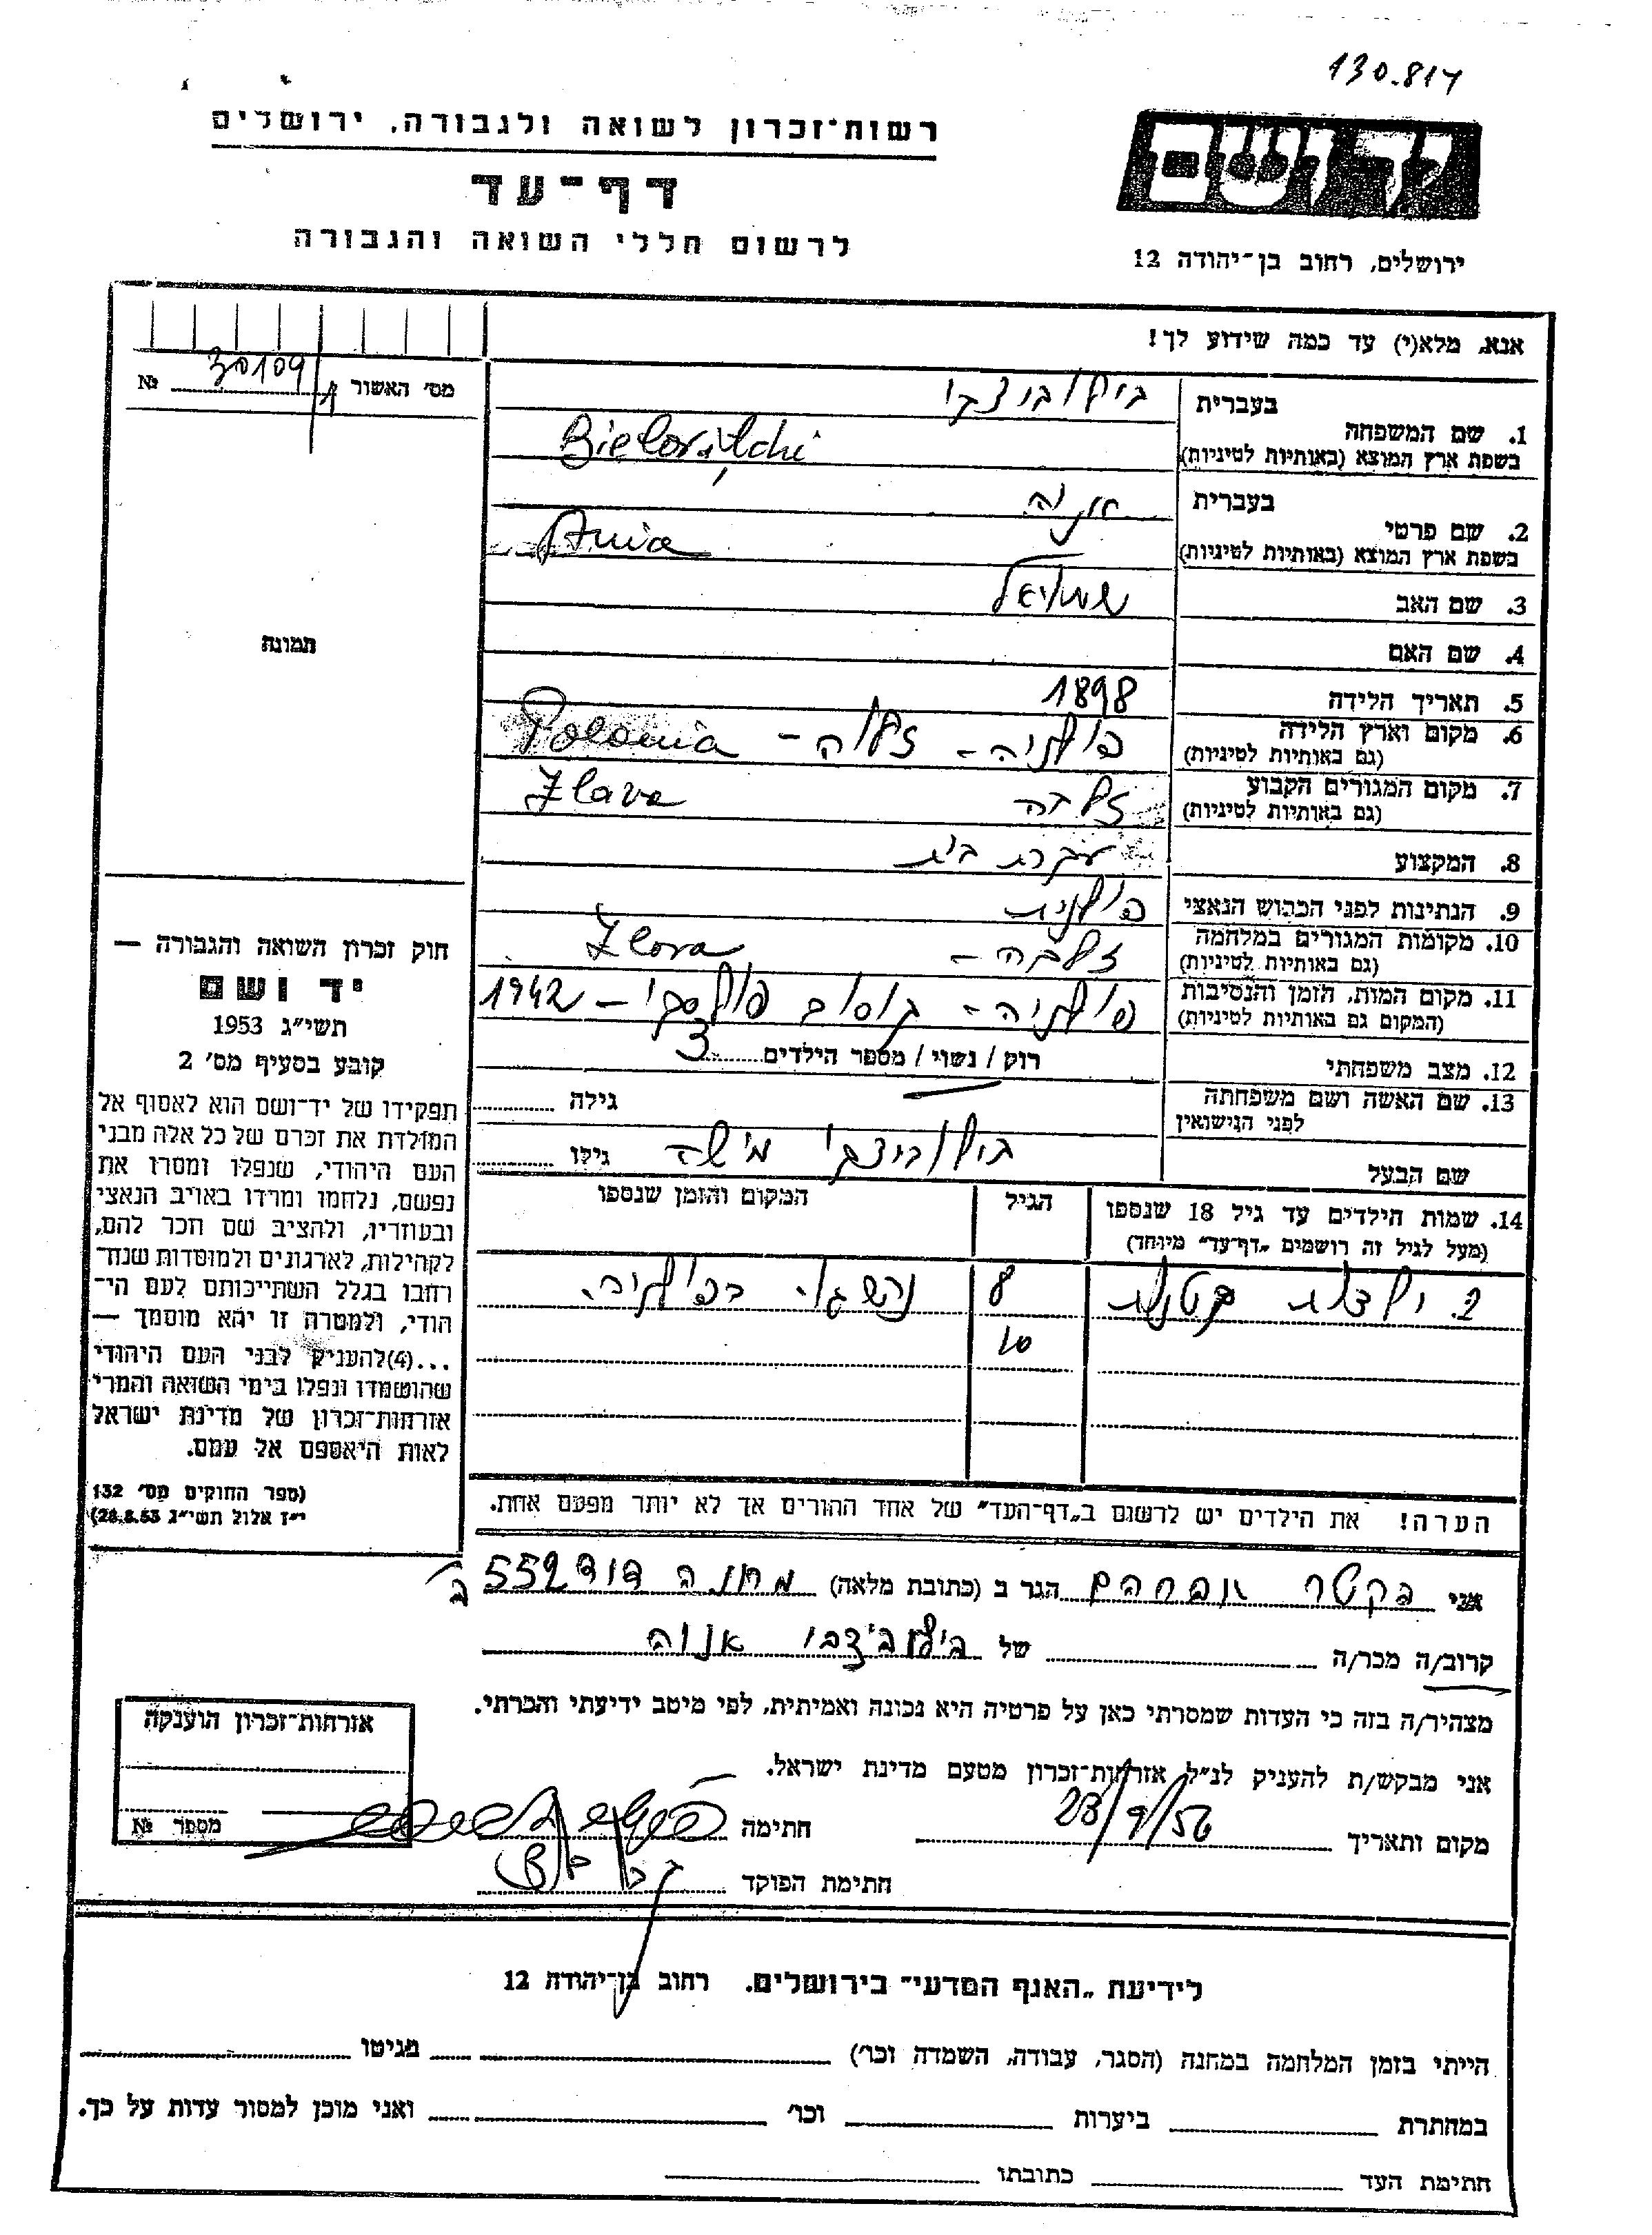 130.814
רשות־זכרון לשואה ולגבורה, ירושלים
דף־עד
לרשום חללי השואה והגבורה
יד ושם
ירושלים, רחוב בן־יהודה 12
אנא, מלא(י) עד כמה שידוע לך!
מס׳ האשור 30109 №
1. שם המשפחה
בעברית
בשפת ארץ המוצא (באותיות לטיניות)
Bielovitchi
2. שם פרטי
בעברית אניה
בשפת ארץ המוצא (באותיות לטיניות) Ania
3. שם האב שמואל
4. שם האם
5. תאריך הלידה 1898
6. מקום וארץ הלידה פולניה - זלוה - Polonia
(גם באותיות לטיניות)
7. מקום המגורים הקבוע זלוה Zlava
(גם באותיות לטיניות)
8. המקצוע עקרת בית
9. הנתינות לפני הכבוש הנאצי פולנית
10. מקומות המגורים במלחמה זלבה - Zlova
(גם באותיות לטיניות)
11. מקום המות, הזמן והנסיבות פולניה - קוסוב פולסקי - 1942
(המקום גם באותיות לטיניות)
12. מצב משפחתי רוק / נשוי / מספר הילדים 3
13. שם האשה ושם משפחתה
לפני הנישואין
גילה
שם הבעל בילוביצקי משה גילו
14. שמות הילדים עד גיל 18 שנספו
(מעל לגיל זה רושמים „דף־עד" מיוחד)
הגיל
המקום והזמן שנספו
2. ילדות קטנות 8 בפולניה.
10
הערה! את הילדים יש לרשום ב„דף־העד" של אחד ההורים אך לא יותר מפעם אחת.
תמונה
חוק זכרון השואה והגבורה —
יד ושם
תשי״ג 1953
קובע בסעיף מס׳ 2
תפקידו של יד־ושם הוא לאסוף אל
המולדת את זכרם של כל אלה מבני
העם היהודי, שנפלו ומסרו את
נפשם, נלחמו ומרדו באויב הנאצי
ובעוזריו, ולהציב שם וזכר להם,
לקהילות, לארגונים ולמוסדות שנח־
רבו בגלל השתייכותם לעם הי־
הודי, ולמטרה זו יהא מוסמך —
...(4) להעניק לבני העם היהודי
שהושמדו ונפלו בימי השואה והמרי
אזרחות־זכרון של מדינת ישראל
לאות היאספם אל עמם.
(ספר החוקים מס׳ 132
י״ז אלול תשי״ג 28.8.53)
אני אברהם הגר ב (כתובת מלאה) מחנה דוד 552
קרוב/ה מכר/ה של אנוה
מצהיר/ה בזה כי העדות שמסרתי כאן על פרטיה היא נכונה ואמיתית, לפי מיטב ידיעתי והכרתי.
אני מבקש/ת להעניק לנ״ל אזרחות־זכרון מטעם מדינת ישראל.
מקום ותאריך 23/9/56 חתימה
חתימת הפוקד
אזרחות־זכרון הוענקה
מספר №
לידיעת „האגף המדעי" בירושלים. רחוב בן־יהודה 12
הייתי בזמן המלחמה במחנה (הסגר, עבודה, השמדה וכו׳) בגיטו
במחתרת ביערות וכו׳ ואני מוכן למסור עדות על כך.
חתימת העד כתובתו